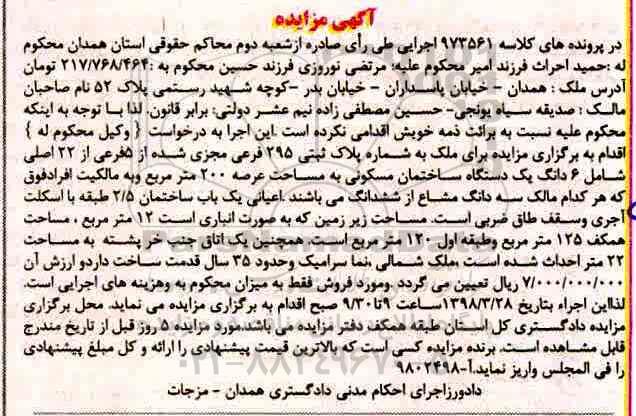 آگهی مزایده
در پرونده های کلاسه ۹۷۳۵۶۱ اجرایی طی رأی صادره ازشعبه دوم محاکم حقوقی استان همدان محکوم
له :حمید احراث فرزند امیر محکوم علیه؛ مرتضی نوروزی فرزند حسین محکوم به :۲۱۷/۷۶۸/۴۶۴ تومان
آدرس ملک : همدان - خیابان پاسداران - خیابان بدر -کوچه شهید رستمی پلاک ۵۲ نام صاحبان
مالک : صدیقه سیاه یونجی- حسین مصطفی زاده نیم عشر دولتی: برابر قانون. لذا با توجه به اینکه
محکوم علیه نسبت به برائت ذمه خویش اقدامی نکرده است .این اجرا به درخواست { وکیل محکوم له }
اقدام به برگزاری مزایده برای ملک به شماره پلاک ثبتی ۲۹۵ فرعی مجزی شده از ۵فرعی از ۲۲ اصلی
شامل ۶ دانگ یک دستگاه ساختمان مسکونی به مساحت عرصه ۲۰۰ متر مربع وبه مالکیت افرادفوق
که هر کدام مالک سه دانگ مشاع از ششدانگ می باشند .اعیانی یک باب ساختمان ۲/۵ طبقه با اسکلت
آجری وسقف طاق ضربی است. مساحت زیر زمین که به صورت انباری است ۱۲ متر مربع ، مساحت
همکف ۱۲۵ متر مربع وطبقه اول ۱۲۰ متر مربع است. همچنین یک اتاق جنب خر پشته به مساحت
۲۲ متر احداث شده است ،ملک شمالی ،نما سرامیک وحدود ۳۵ سال قدمت ساخت داردو ارزش آن
۷/۰۰۰/۰۰۰/۰۰۰ ریال تعیین می گردد .ومورد فروش فقط به میزان محکوم به وهزینه های اجرایی است.
لذااین اجراء بتاریخ ۱۳۹۸/۳/۲۸ساعت ۹تا۹/۳۰ صبح اقدام به برگزاری مزایده می نماید. محل برگزاری
مزایده دادگستری کل استان طبقه همکف دفتر مزایده می باشد.مورد مزایده ۵ روز قبل از تاریخ مندرج
قابل مشاهده است. برنده مزایده کسی است که بالاترین قیمت پیشنهادی را ارائه و کل مبلغ پیشنهادی
را فی المجلس واریز نماید.آ-۹۸۰۲۴۹۸
دادورزاجرای احکام مدنی دادگستری همدان - مزجات